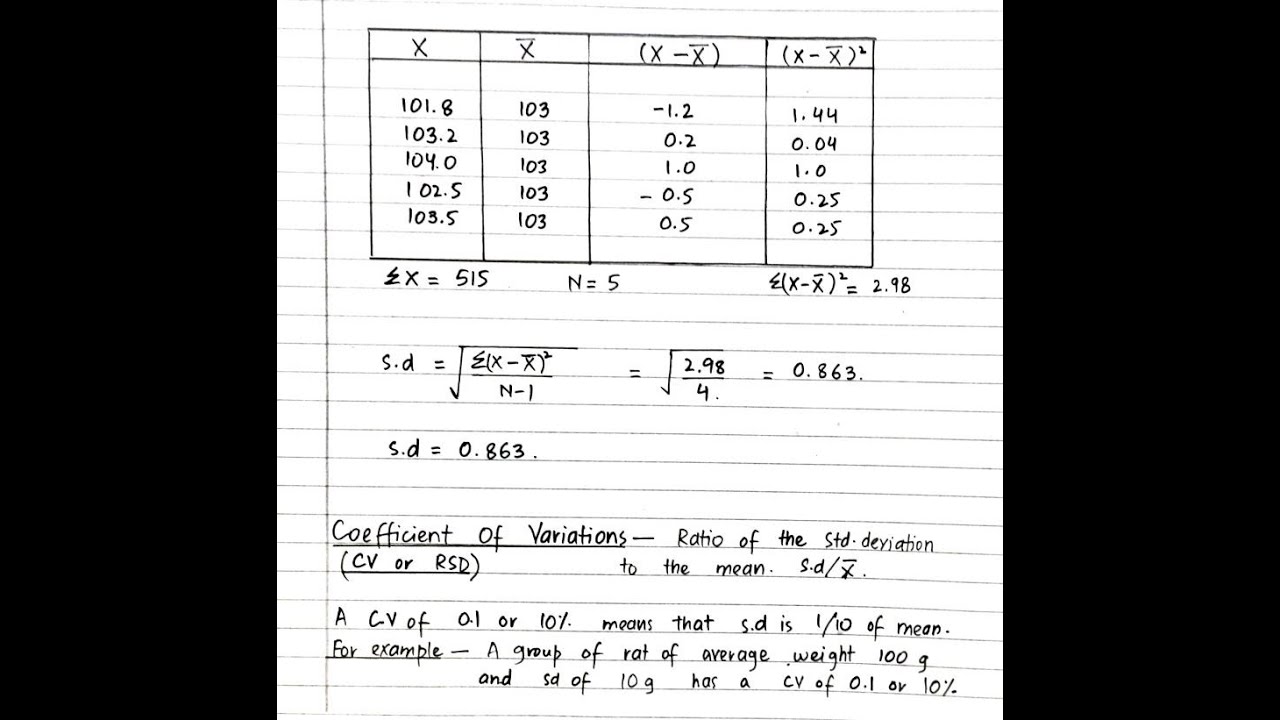 X X̄ (X - X̄) (X - X̄)²
101.8 103 -1.2 1.44
103.2 103 0.2 0.04
104.0 103 1.0 1.0
102.5 103 - 0.5 0.25
103.5 103 0.5 0.25
ΣX = 515 N = 5 Σ(X-X̄)² = 2.98
s.d = √(Σ(X-X̄)²/N-1) = √(2.98/4.) = 0.863.
s.d = 0.863.
Coefficient Of Variations — Ratio of the std.deviation
(CV or RSD) to the mean. s.d/X̄.
A C.V of 0.1 or 10% means that s.d is 1/10 of mean.
For example — A group of rat of average weight 100 g
and sd of 10 g has a CV of 0.1 or 10%.